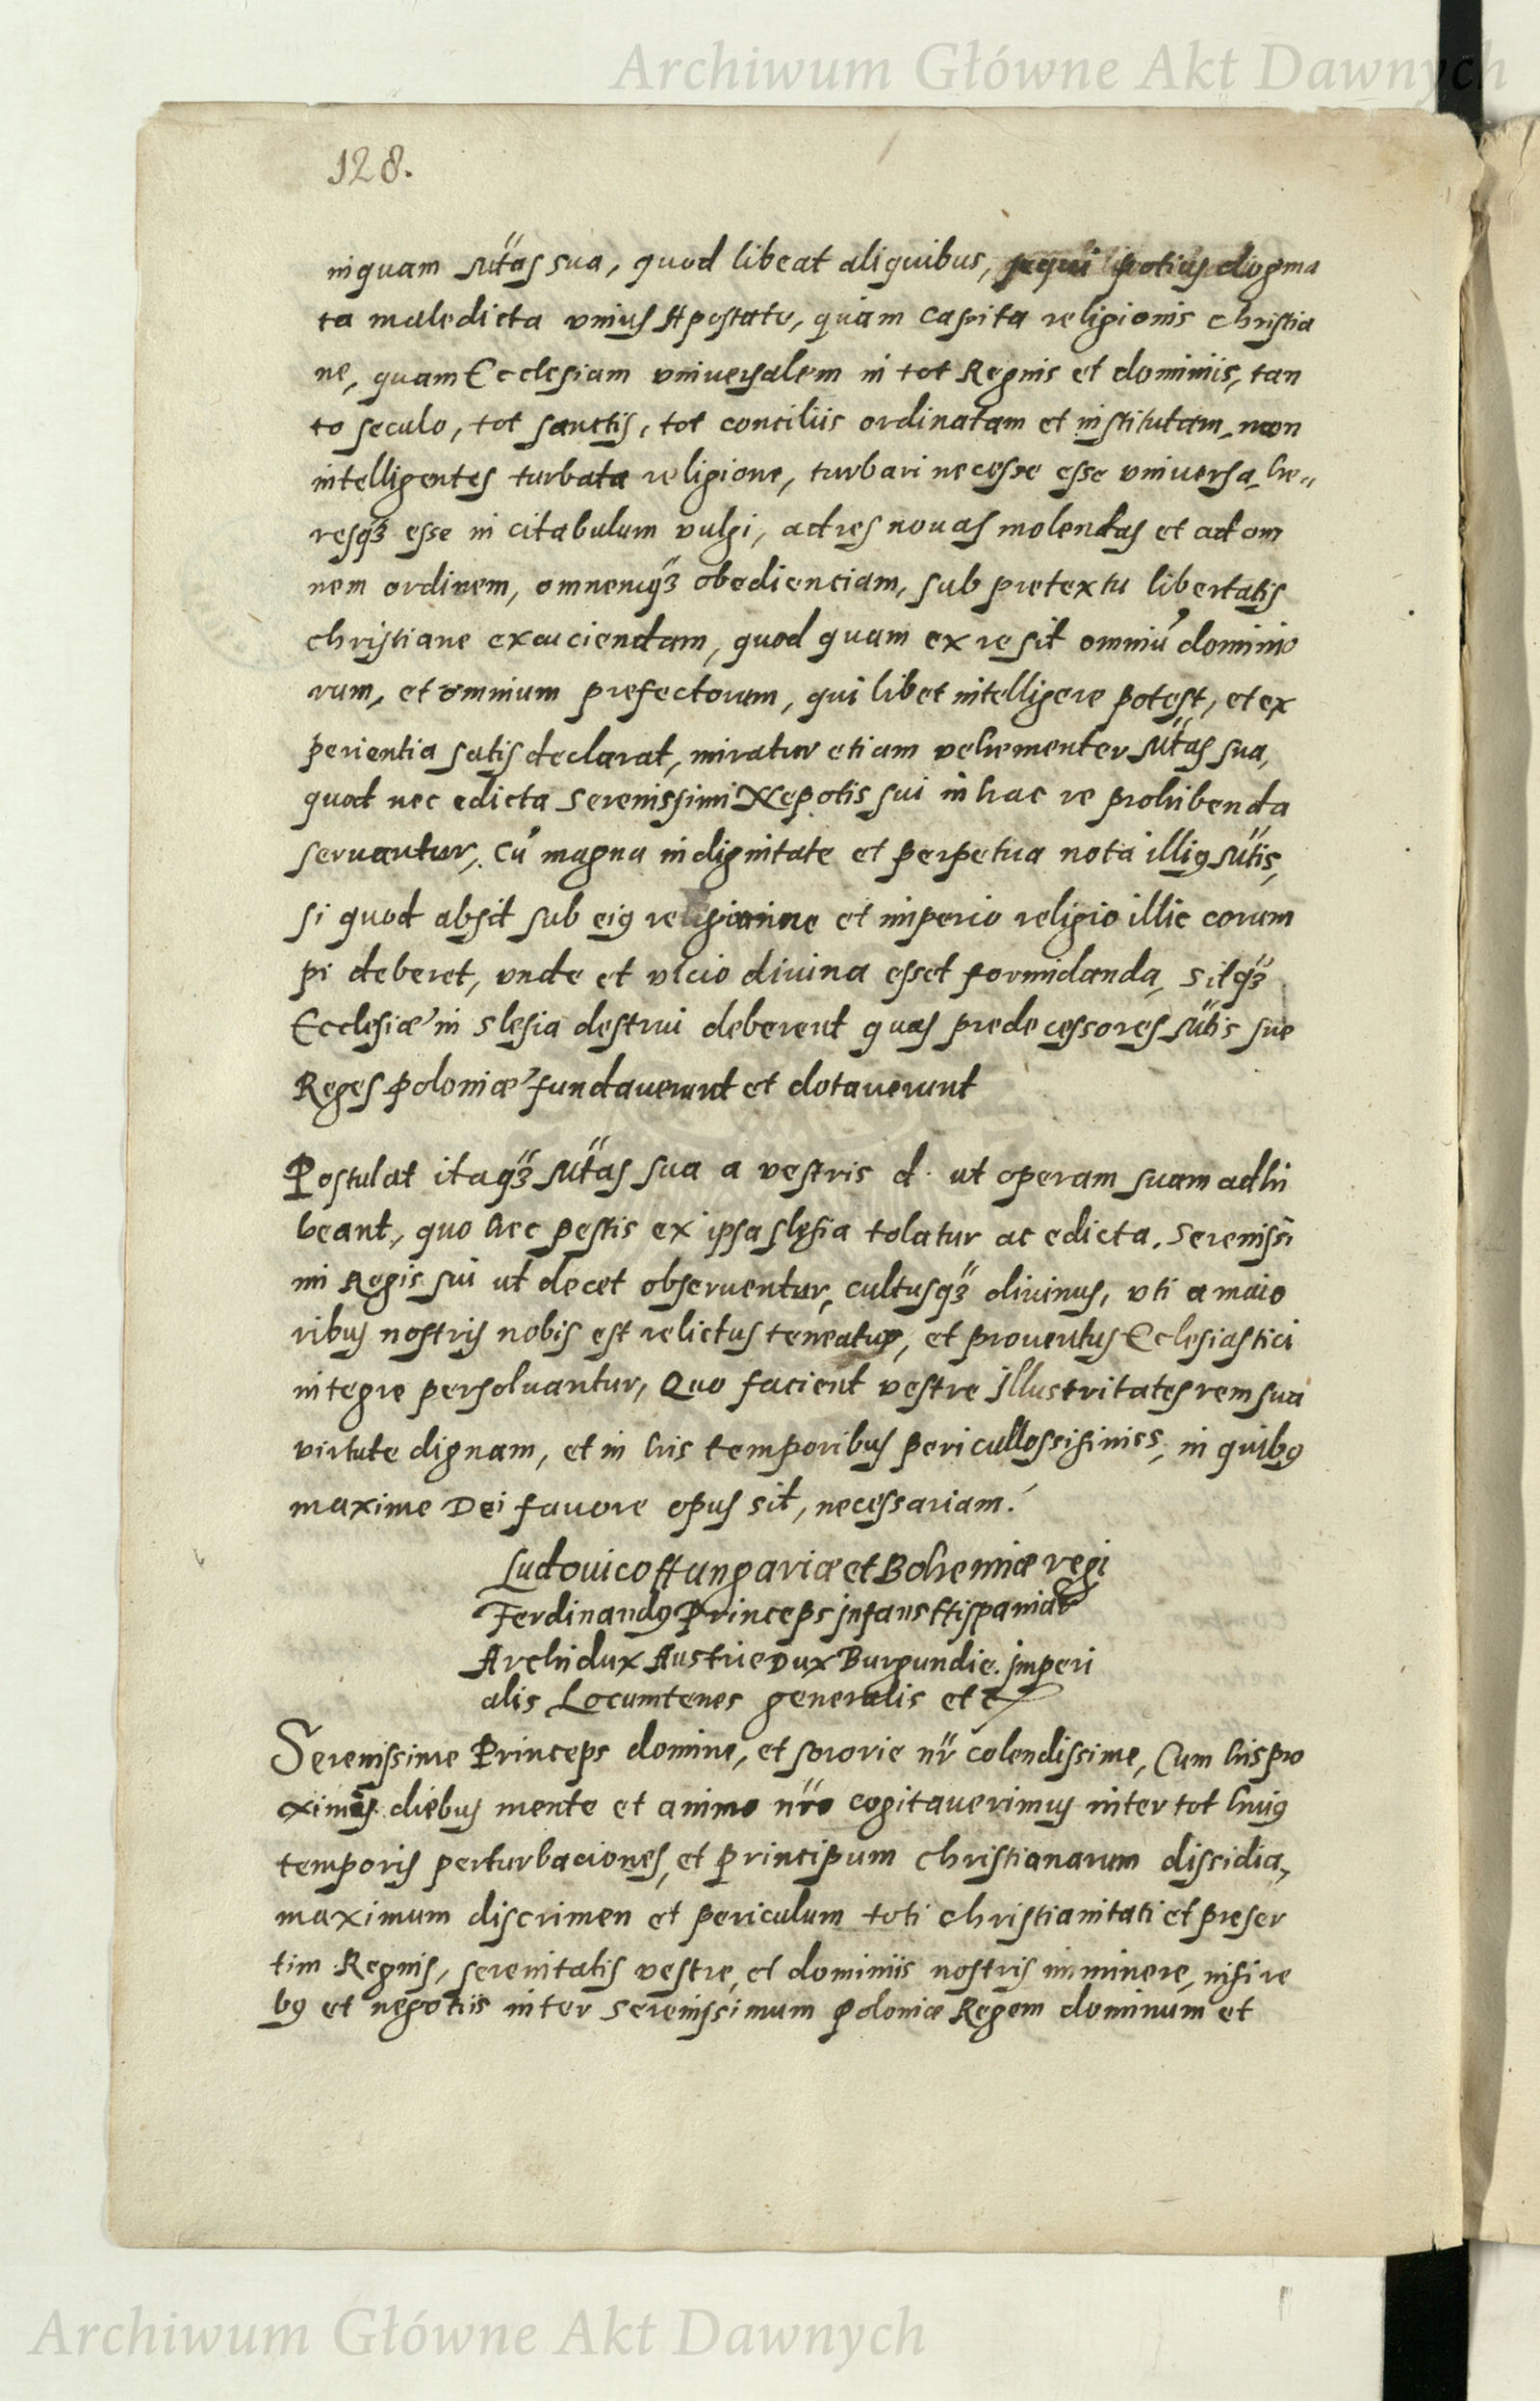 Archiwum Główne Akt Dawnych
128.
inquam Mtas sua, quod libeat aliquibus, sequi potius dogma
ta maledicta unius Apostate, quam capita religionis christia
ne, quam Ecclesiam vniuersalem in tot Regnis et dominiis, tan
to seculo, tot sanctis, tot conciliis ordinatam et institutam, non
intelligentes turbata religione, turbari necesse esse vniuersa, he„
resqz esse in citabulum vulgi, ad res nouas molendas et ad om
nem ordinem, omnemqz obedienciam, sub pretextu libertatis
christiane exauciendam, quod quam ex re sit omniu dominio
rum, et omnium prefectorum, qui libet intelligere potest, et ex
perientia satis declarat, miratur etiam vehementer Mtas sua,
quod nec edicta Serenissimi Nepotis sui in hac re prohibenda
seruantur, Cu magna indignitate et perpetua nota illi9 Mtis,
si quod absit sub ei9 regimine et imperio religio illic corum
pi deberet, vnde et vlcio diuina esset formidanda, Sitqz
Ecclesiæ in Slesia destrui deberent quas predecessores Mtis sue
Reges Poloniæ fundauerunt et dotauerunt
Postulat itaqz Mtas sua a vestris d. ut operam suam adhi
beant, quo hec pestis ex ipsa slesia tolatur ac edicta. Serenissi
mi Regis sui ut decet obseruentur, cultusqz diuinus, vti a maio
ribus nostris nobis est relictus teneatur, et prouentus Ecclesiastici
integre persoluantur, Quo facient vestre Illustritates rem sua
virtute dignam, et in his temporibus in quib9
maxime Dei fauore opus sit, necessariam.
Ludouico Hungariæ et Bohemiæ regi
Ferdinand9 Princeps infans Hispaniar
Archidux Austrie Dux Burgundie. imperi
alis Locumtenes generalis etc
Serenissime Princeps domine, et sororie nr colendissime, Cum his pro
ximis diebus mente et animo nro cogitauerimus inter tot hui9
temporis perturbaciones, et Principum christianarum dissidia,
maximum discrimen et periculum toti christianitati et preser
tim Regnis, serenitatis vestre, et dominiis nostris imminere, nisi re
b9 et negotiis inter Serenissimum Poloniæ Regem dominum et
Archiwum Główne Akt Dawnych